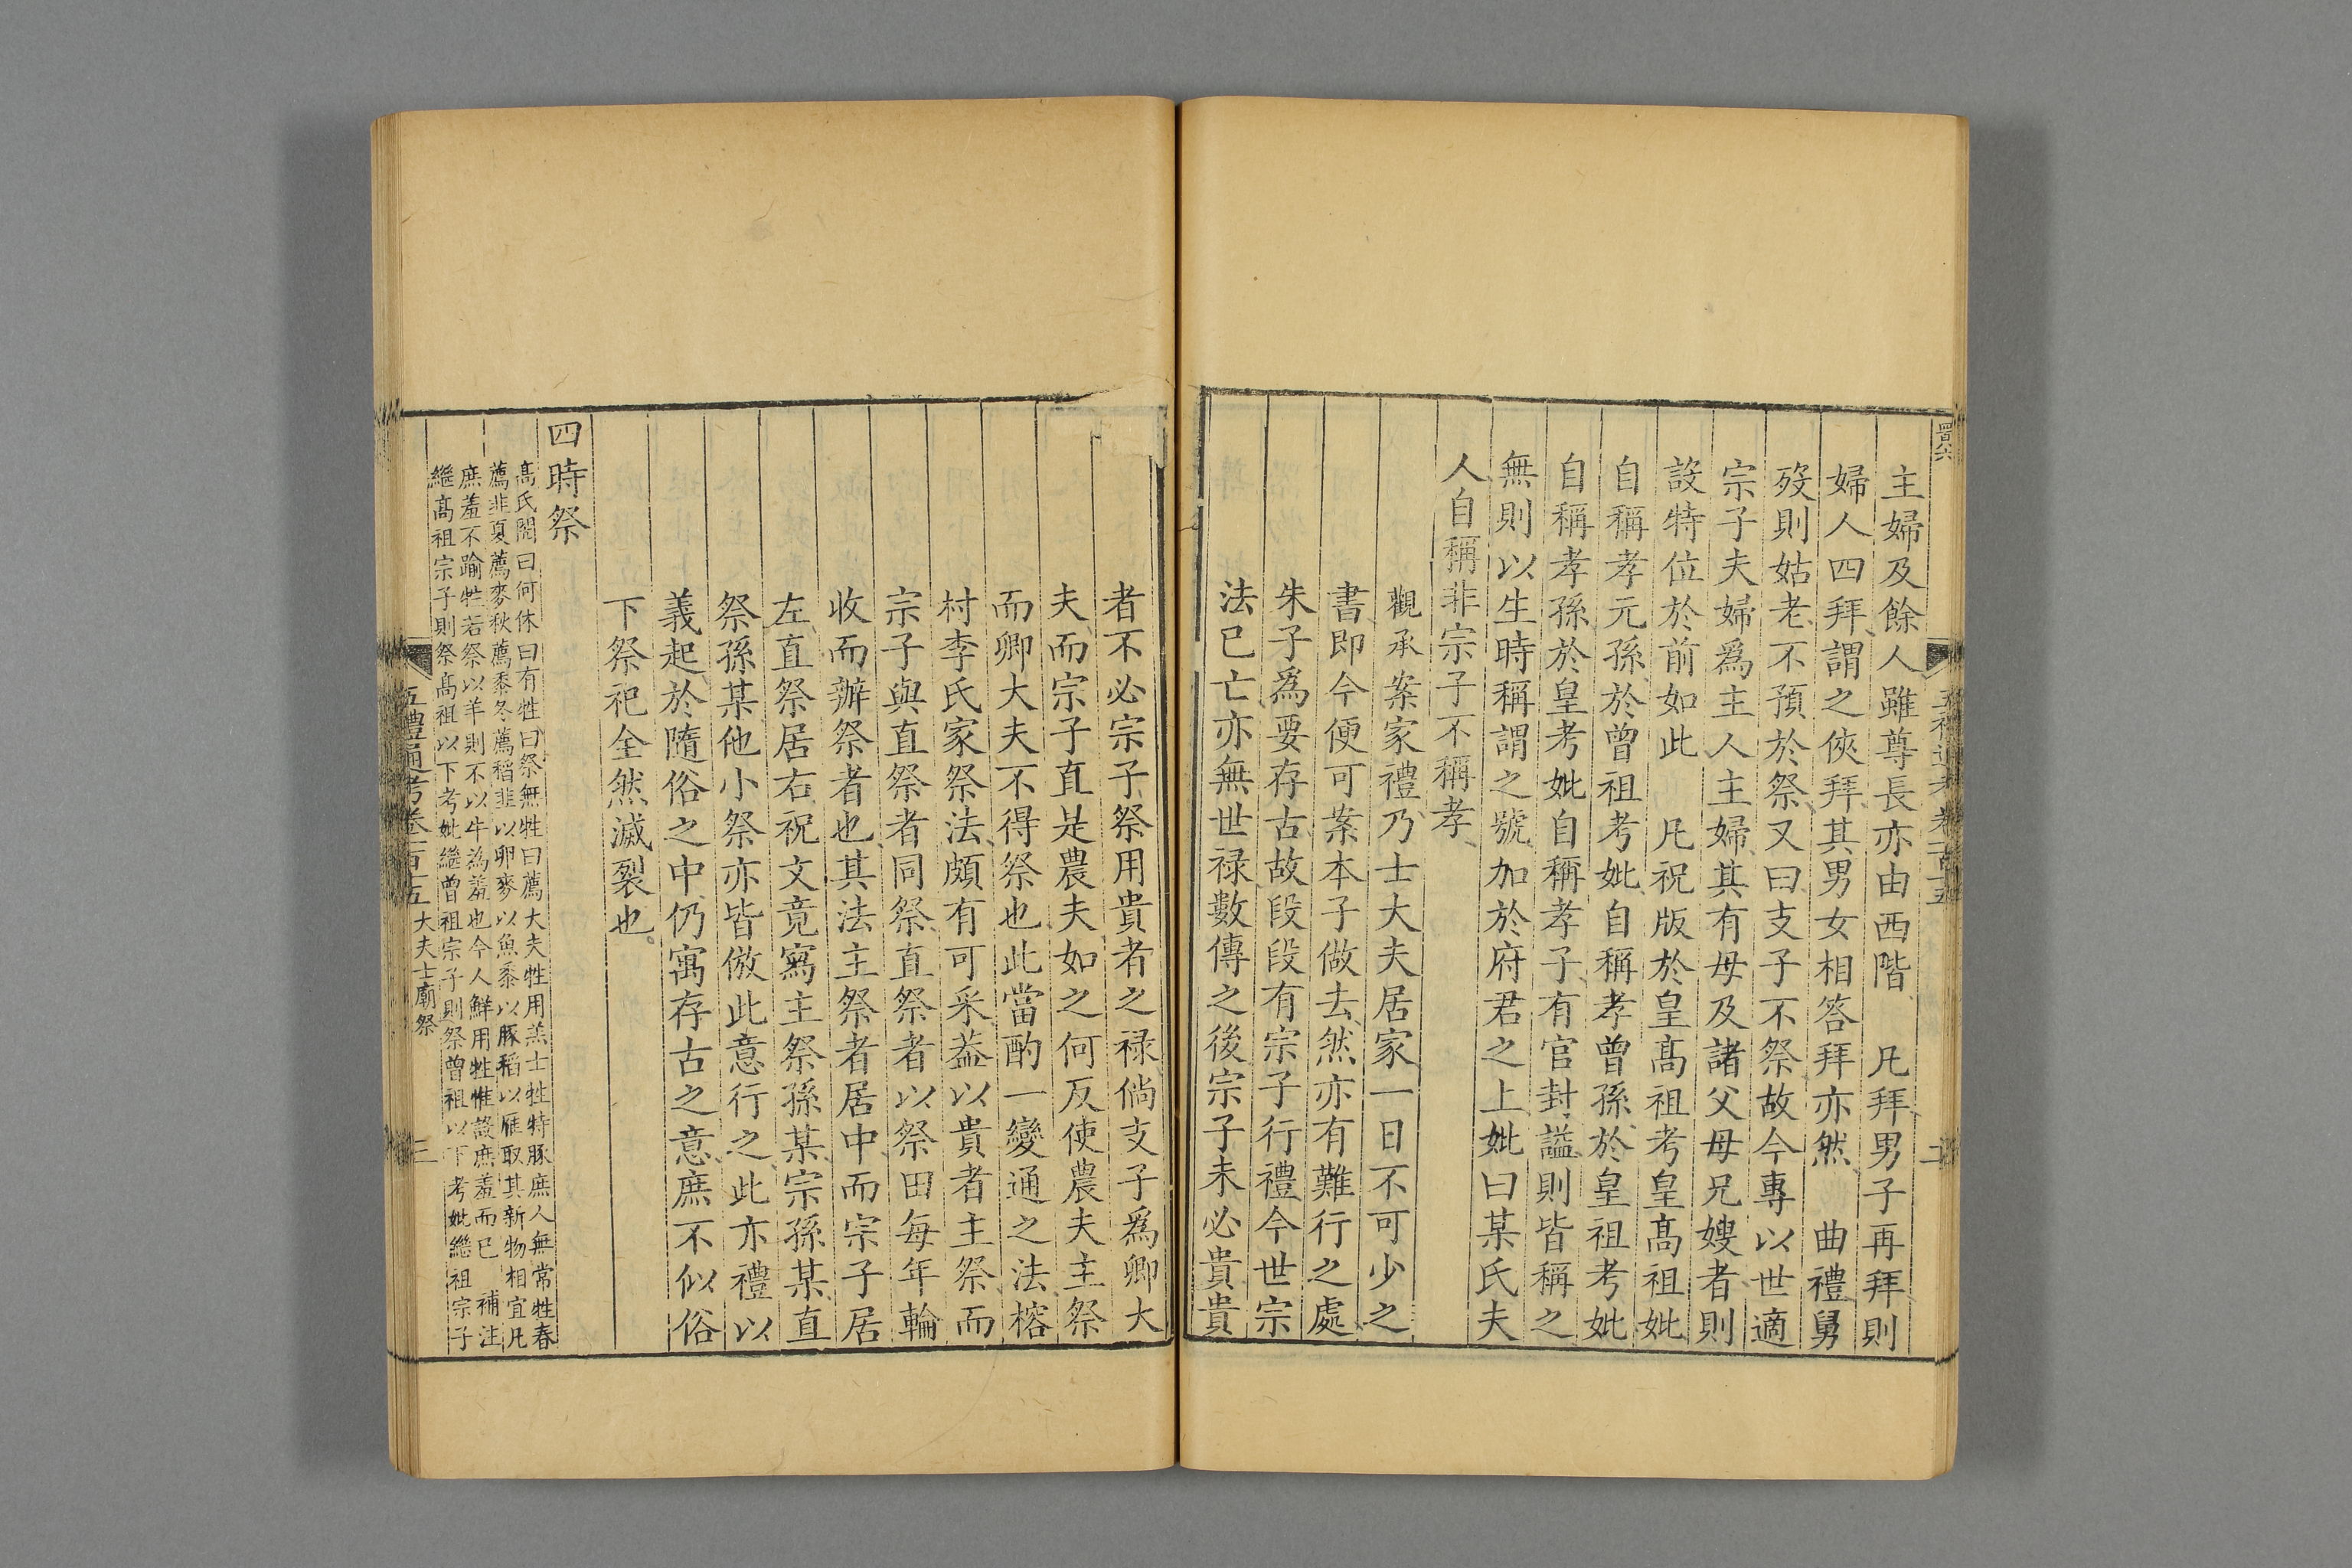 主婦及餘人雖尊長亦由西階　凡拜男子再拜則
婦人四拜謂之俠拜其男女相答拜亦然　曲禮舅
歿則姑老不預於祭又曰支子不祭故今專以世適
宗子夫婦爲主人主婦其有母及諸父母兄嫂者則
設特位於前如此　凡祝版於皇高祖考皇高祖妣
自稱孝元孫於曾祖考妣自稱孝曾孫於皇祖考妣
自稱孝孫於皇考妣自稱孝子有官封謚則皆稱之
無則以生時稱謂之號加於府君之上妣曰某氏夫
人自稱非宗子不稱孝
觀承案家禮乃士大夫居家一日不可少之
書即今便可案本子做去然亦有難行之處
朱子爲要存古故段段有宗子行禮今世宗
法已亡亦無世祿數傳之後宗子未必貴貴
者不必宗子祭用貴者之祿倘支子爲卿大
夫而宗子直是農夫如之何反使農夫主祭
而卿大夫不得祭也此當酌一變通之法榕
村李氏家祭法頗有可采葢以貴者主祭而
宗子與直祭者同祭直祭者以祭田每年輪
收而辦祭者也其法主祭者居中而宗子居
左直祭居右祝文竟寫主祭孫某宗孫某直
祭孫某他小祭亦皆倣此意行之此亦禮以
義起於隨俗之中仍寓存古之意庶不似俗
下祭祀全然滅裂也
四時祭
高氏閌曰何休曰有牲曰祭無牲曰薦大夫牲用羔士牲特豚庶人無常牲春
薦韭夏薦麥秋薦黍冬薦稻韭以卵麥以魚黍以豚稻以雁取其新物相宜凡
庶羞不踰牲若祭以羊則不以牛為羞也今人鮮用牲惟設庶羞而已　補注
繼高祖宗子則祭高祖以下考妣繼曾祖宗子則祭曾祖以下考妣繼祖宗子
五禮通考卷一百十五　大夫士廟祭　三